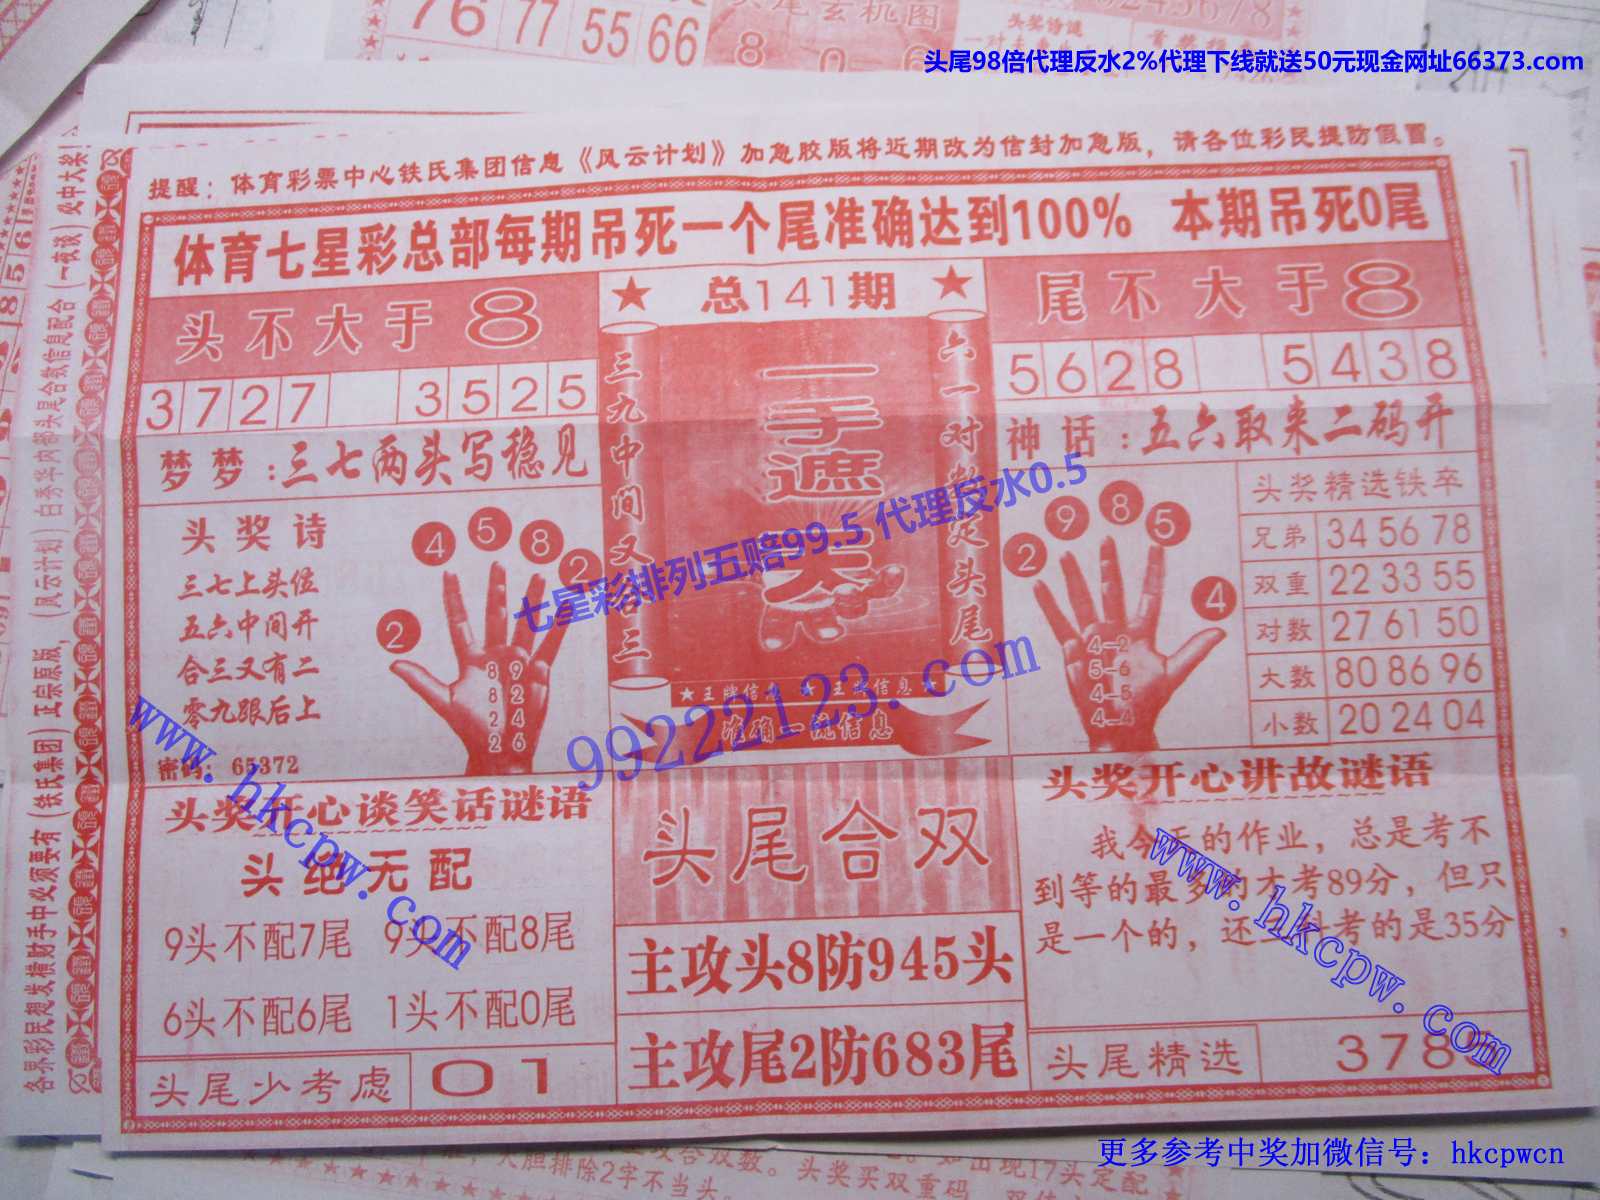 76 77 55 66
头尾玄机图
8 0 6
头奖诗谜
头尾98倍代理反水2%代理下线就送50元现金网址66373.com
提醒：体育彩票中心铁氏集团信息《风云计划》加急胶版将近期改为信封加急版，请各位彩民提防假冒。
体育七星彩总部每期吊死一个尾准确达到100% 本期吊死0尾
头不大于8
3727 3525
梦梦：三七两头写稳见
头奖诗
三七上头位
五六中间开
合三又有二
零九跟后上
密码：65372
2 4 5 8 2
8 9
8 2
2 4
2 6
★ 总141期 ★
三九中间又合三
一手遮天
六一对数定头尾
★王牌信息★王牌信息★
准确一流信息
尾不大于8
5628 5438
神话：五六取来二码开
2 9 8 5 4
4-2
5-6
4-5
4-4
头奖精选铁卒
兄弟 34 56 78
双重 22 33 55
对数 27 61 50
大数 80 86 96
小数 20 24 04
头奖开心谈笑话谜语
头绝无配
9头不配7尾 9头不配8尾
6头不配6尾 1头不配0尾
头尾少考虑 01
头尾合双
主攻头8防945头
主攻尾2防683尾
头奖开心讲故谜语
我今天的作业，总是考不
到等的最多的才考89分，但只
是一个的，还 科考的是35分，
头尾精选 378
各界彩民想发横财手中必须要有（铁氏集团）正宗原版，（风云计划）
七星彩排列五赔99.5 代理反水0.5
99222123.com
www.hkcpw.com
www.hkcpw.com
大胆排除2字不当头。
头奖买双重码
出现17头定配
更多参考中奖加微信号：hkcpwcn